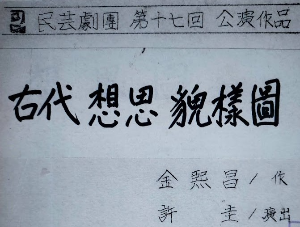 民芸劇團 第十七回 公演作品
古代 想思 貌樣圖
金熙昌/作
許圭/演出